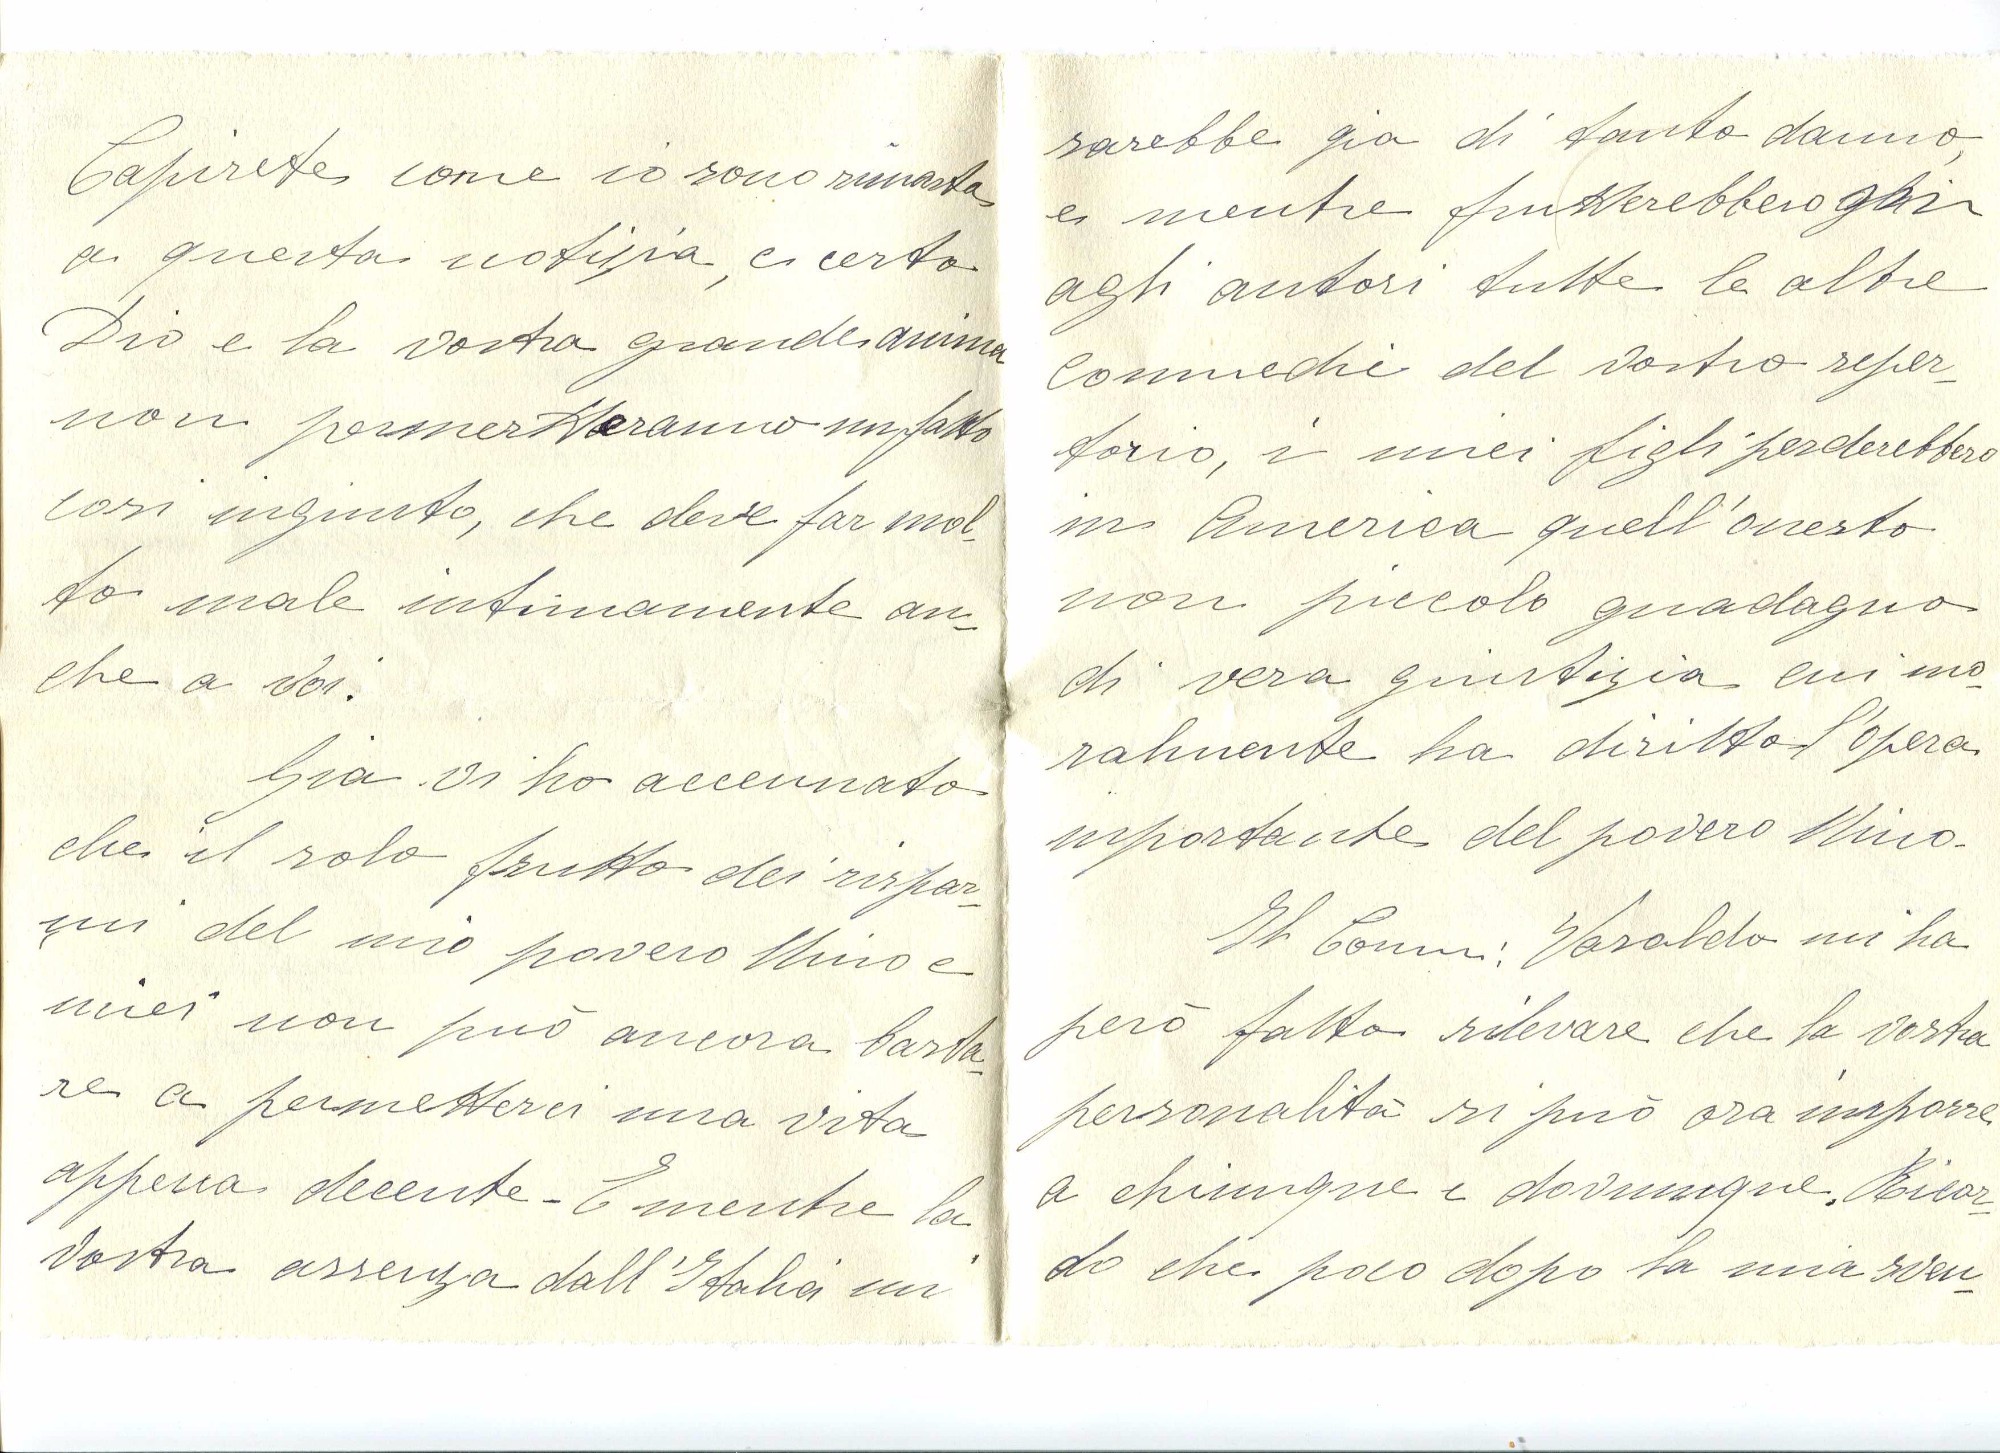 Capirete come io sono rimasta
a questa notizia, e certo
Dio e la vostra grande anima
non permetteranno un fatto
così ingiusto, che deve far mol-
to male intimamente an-
che a Voi.
Già vi ho accennato
che il solo frutto dei rispar-
mi del mio povero Nino e
miei non può ancora basta-
re a permetterci una vita
appena decente - E mentre la
Vostra assenza dall'Italia mi
sarebbe già di tanto danno,
e mentre frutterebbero
agli autori tutte le altre
commedie del Vostro reper-
torio, i miei figli perderebbero
in America quell'onesto
non piccolo guadagno
di vera giustizia cui mo-
ralmente ha diritto l'opera
importante del povero Nino.
Il Comm: Varaldo mi ha
però fatto rilevare che la vostra
personalità si può ora imporre
a chiunque e dovunque. Ricor-
do che poco dopo la mia sven-